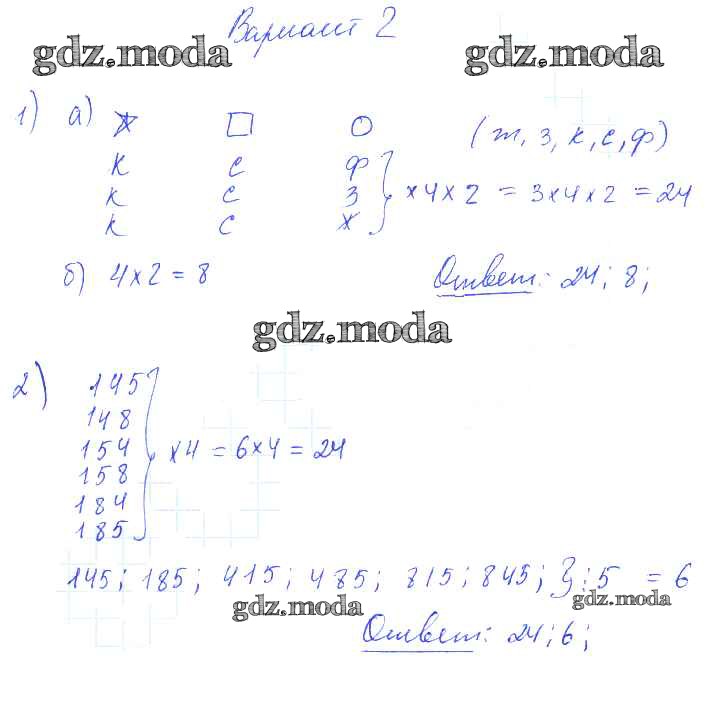 Вариант 2
gdz.moda gdz.moda
1) а) (ж, з, к, с, ф)
к с ф
к с з } ×4×2 = 3×4×2 = 24
к с ж
б) 4×2 = 8 Ответ: 24; 8;
gdz.moda
2) 145
148
154 } ×4 = 6×4 = 24
158
184
185
145; 185; 415; 485; 815; 845; } : 5 = 6
gdz.moda gdz.moda
Ответ: 24; 6;